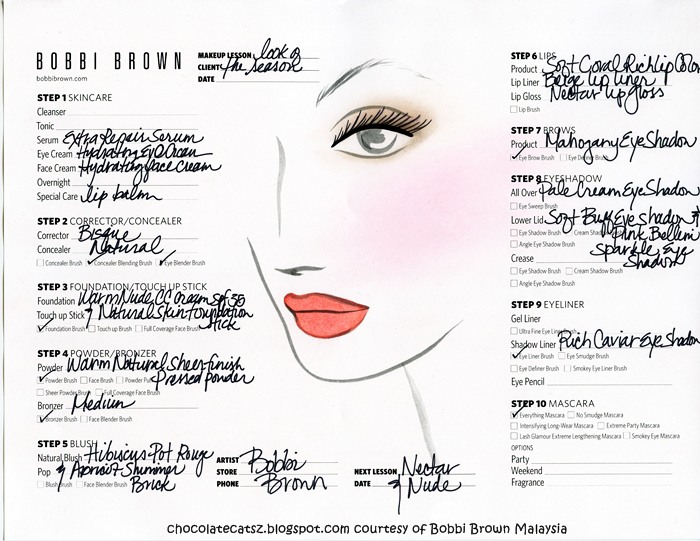 BOBBI BROWN
bobbibrown.com
MAKEUP LESSON look of
CLIENT the season
DATE
STEP 1 SKINCARE
Cleanser
Tonic
Serum Extra Repair Serum
Eye Cream Hydrating Eye Cream
Face Cream Hydrating face cream
Overnight
Special Care lip balm
STEP 2 CORRECTOR/CONCEALER
Corrector Bisque
Concealer Natural
Concealer Brush Concealer Blending Brush Eye Blender Brush
STEP 3 FOUNDATION/TOUCH UP STICK
Foundation Warm Nude CC Cream SPF 35
Touch up Stick & Natural Skin Foundation
Stick
Foundation Brush Touch up Brush Full Coverage Face Brush
STEP 4 POWDER/BRONZER
Powder Warm Natural Sheer finish
Pressed powder
Powder Brush Face Brush Powder
Sheer Powder Brush Full Coverage Face Brush
Bronzer Medium
Bronzer Brush Face Blender Brush
STEP 5 BLUSH
Natural Blush Hibiscus Pot Rouge
Pop & Apricot Shimmer
Brick
Blush Brush Face Blender Brush
ARTIST Bobbi
STORE
PHONE Brown
NEXT LESSON Nectar
DATE & Nude
STEP 6 LIPS
Product Soft Coral Rich Lip Color
Lip Liner Beige lip liner
Lip Gloss Nectar lip gloss
Lip Brush
STEP 7 BROWS
Product Mahogany Eye Shadow
Eye Brow Brush Eye Definer Brush
STEP 8 EYESHADOW
All Over Pale Cream Eye Shadow
Eye Sweep Brush
Lower Lid Soft Buff eye shadow &
Eye Shadow Brush Cream Shadow Pink Bellini
Angle Eye Shadow Brush Sparkle Eye
Crease Shadow
Eye Shadow Brush Cream Shadow Brush
Angle Eye Shadow Brush
STEP 9 EYELINER
Gel Liner
Ultra Fine Eye Liner Brush
Shadow Liner Rich Caviar Eye Shadow
Eye Liner Brush Eye Smudge Brush
Eye Definer Brush Smokey Eye Liner Brush
Eye Pencil
STEP 10 MASCARA
Everything Mascara No Smudge Mascara
Intensifying Long-Wear Mascara Extreme Party Mascara
Lash Glamour Extreme Lengthening Mascara Smokey Eye Mascara
OPTIONS
Party
Weekend
Fragrance
chocolatecatsz.blogspot.com courtesy of Bobbi Brown Malaysia